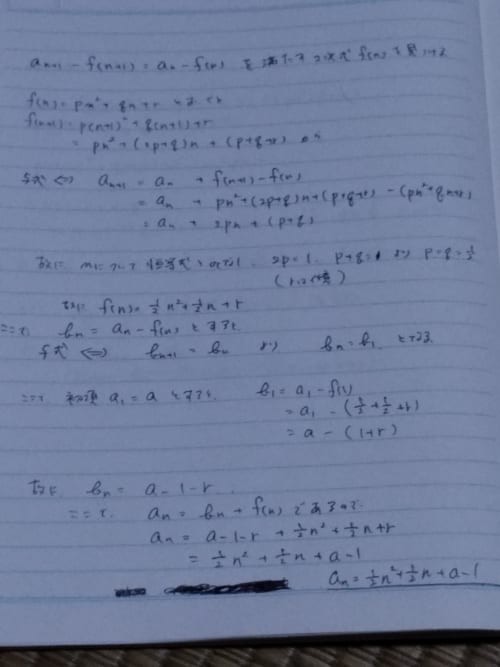 a_{n+1} - f(n+1) = a_n - f(n) を満たす2次式 f(n) を
f(n) = pn² + qn + r とおく
f(n+1) = p(n+1)² + q(n+1) + r
= pn² + (2p+q)n + (p+q+r)
与式 ⇔ a_{n+1} = a_n + f(n+1) - f(n)
= a_n + pn² + (2p+q)n + (p+q+r) - (pn²+qn+r)
= a_n + 2pn + (p+q)
故に nについて恒等式 2p=1, p+q=1 より p=q=½
(rは任意)
故に f(n) = ½n² + ½n + r
ここで b_n = a_n - f(n) とすると
与式 ⇔ b_{n+1} = b_n より b_n = b_1 となる
ここで 初項 a_1 = a とすると b_1 = a_1 - f(1)
= a_1 - (½ + ½ + r)
= a - (1+r)
故に b_n = a - 1 - r
ここで a_n = b_n + f(n) であるので
a_n = a - 1 - r + ½n² + ½n + r
= ½n² + ½n + a - 1
a_n = ½n² + ½n + a - 1